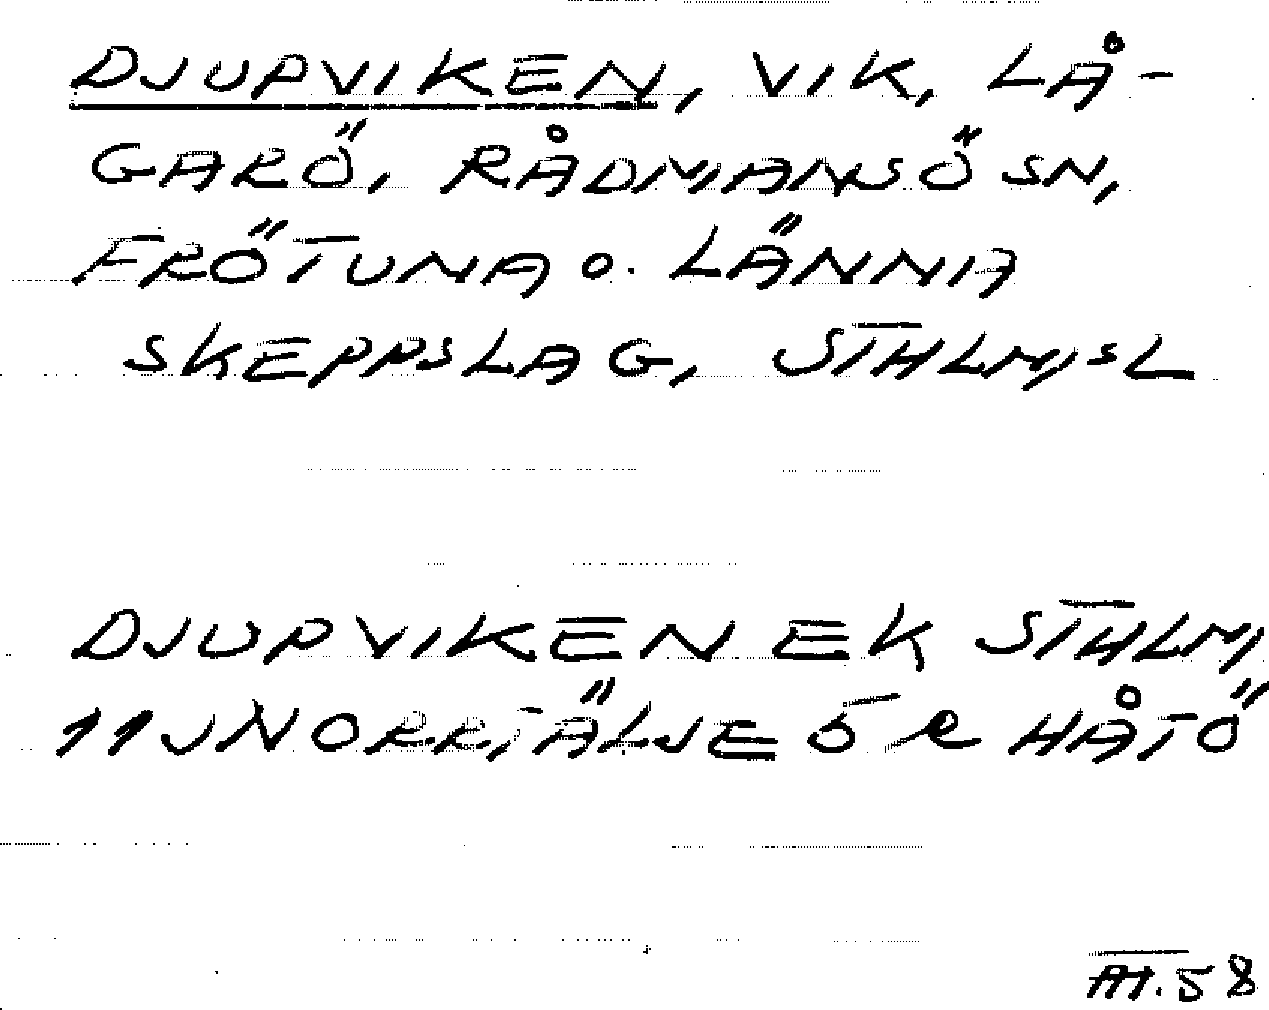 DJUPVIKEN, VIK, LÅ-
GARÖ, RÅDMANSÖ SN,
FRÖTUNA O. LÄNNA
SKEPPSLAG, STHLMSL
DJUPVIKEN EK STHLM,
11J NORRTÄLJE 5 HÅTÖ
58